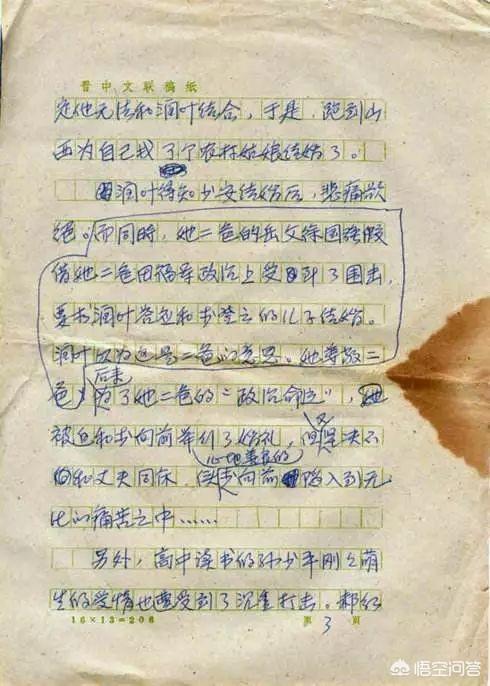 晋中文联稿纸
定他无法和润叶结合，于是，跑到山
西为自己找了个农村姑娘结婚了。
润叶得知少安结婚后，悲痛欲
绝。而同时，她二爸的岳父徐国强假
借她二爸田福军政治上受到了围击，
要求润叶答应和李登云的儿子结婚。
润叶以为这是二爸的意思。她尊敬二
爸，后来为了她二爸的"政治命运"，
被迫和李向前举行了婚礼，但又坚决不
和丈夫同床，使心地善良的李向前陷入到无
比的痛苦之中……
另外，高中读书的孙少平刚刚萌
生的爱情也遭受到了沉重打击。郝红
16×13=208
第3页
悟空问答